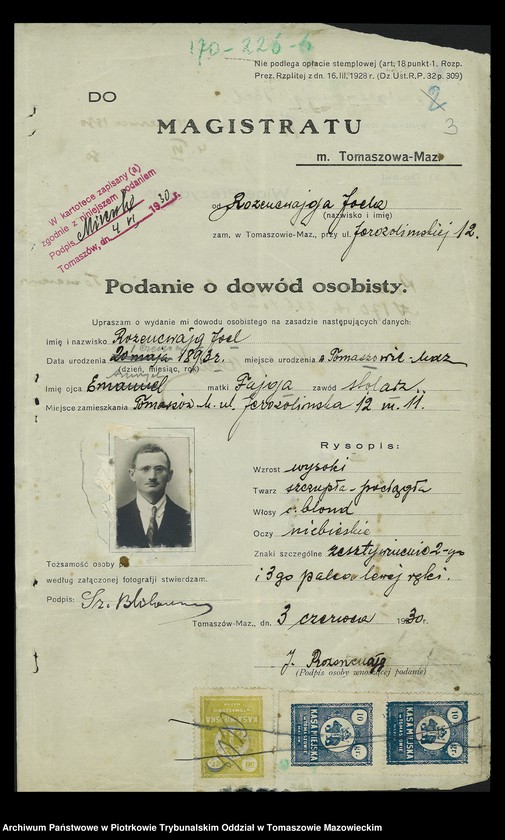 170-226-6
Nie podlega opłacie stemplowej (art. 18 punkt 1. Rozp.
Prez. Rzplitej z dn. 16. III. 1928 r. (Dz. Ust. R. P. 32 p. 309)
2
3
DO
MAGISTRATU
m. Tomaszowa-Maz.
W kartotece zapisany (a)
zgodnie z niniejszem podaniem
Podpis
Tomaszów, dn. 4 VI 1930 r.
od Rozencwajga Joela
(nazwisko i imię)
zam. w Tomaszowie-Maz., przy ul. Jerozolimskiej 12.
Podanie o dowód osobisty.
Upraszam o wydanie mi dowodu osobistego na zasadzie następujących danych:
imię i nazwisko Rozencwajg Joel
Data urodzenia 20 maja 1893 r. miejsce urodzenia Tomaszowie-Maz
(dzień, miesiąc, rok)
Imię ojca Emanuel matki Fajga zawód stolarz.
Miejsce zamieszkania Tomaszów M. ul. Jerozolimska 12 m. 11.
Rysopis:
Wzrost wysoki
Twarz szczupła-pociągła
Włosy c. blond
Oczy niebieskie
Znaki szczególne zesztywnienie 2-go
i 3go palca lewej ręki.
Tożsamość osoby
według załączonej fotografji stwierdzam.
Podpis:
Tomaszów-Maz., dn. 3 czerwca 1930 r.
J. Rozencwajg
(Podpis osoby wnoszącej podanie)
KASA MIEJSKA
50 gr.
KASA MIEJSKA
10 gr.
KASA MIEJSKA
10 gr.
Archiwum Państwowe w Piotrkowie Trybunalskim Oddział w Tomaszowie Mazowieckim